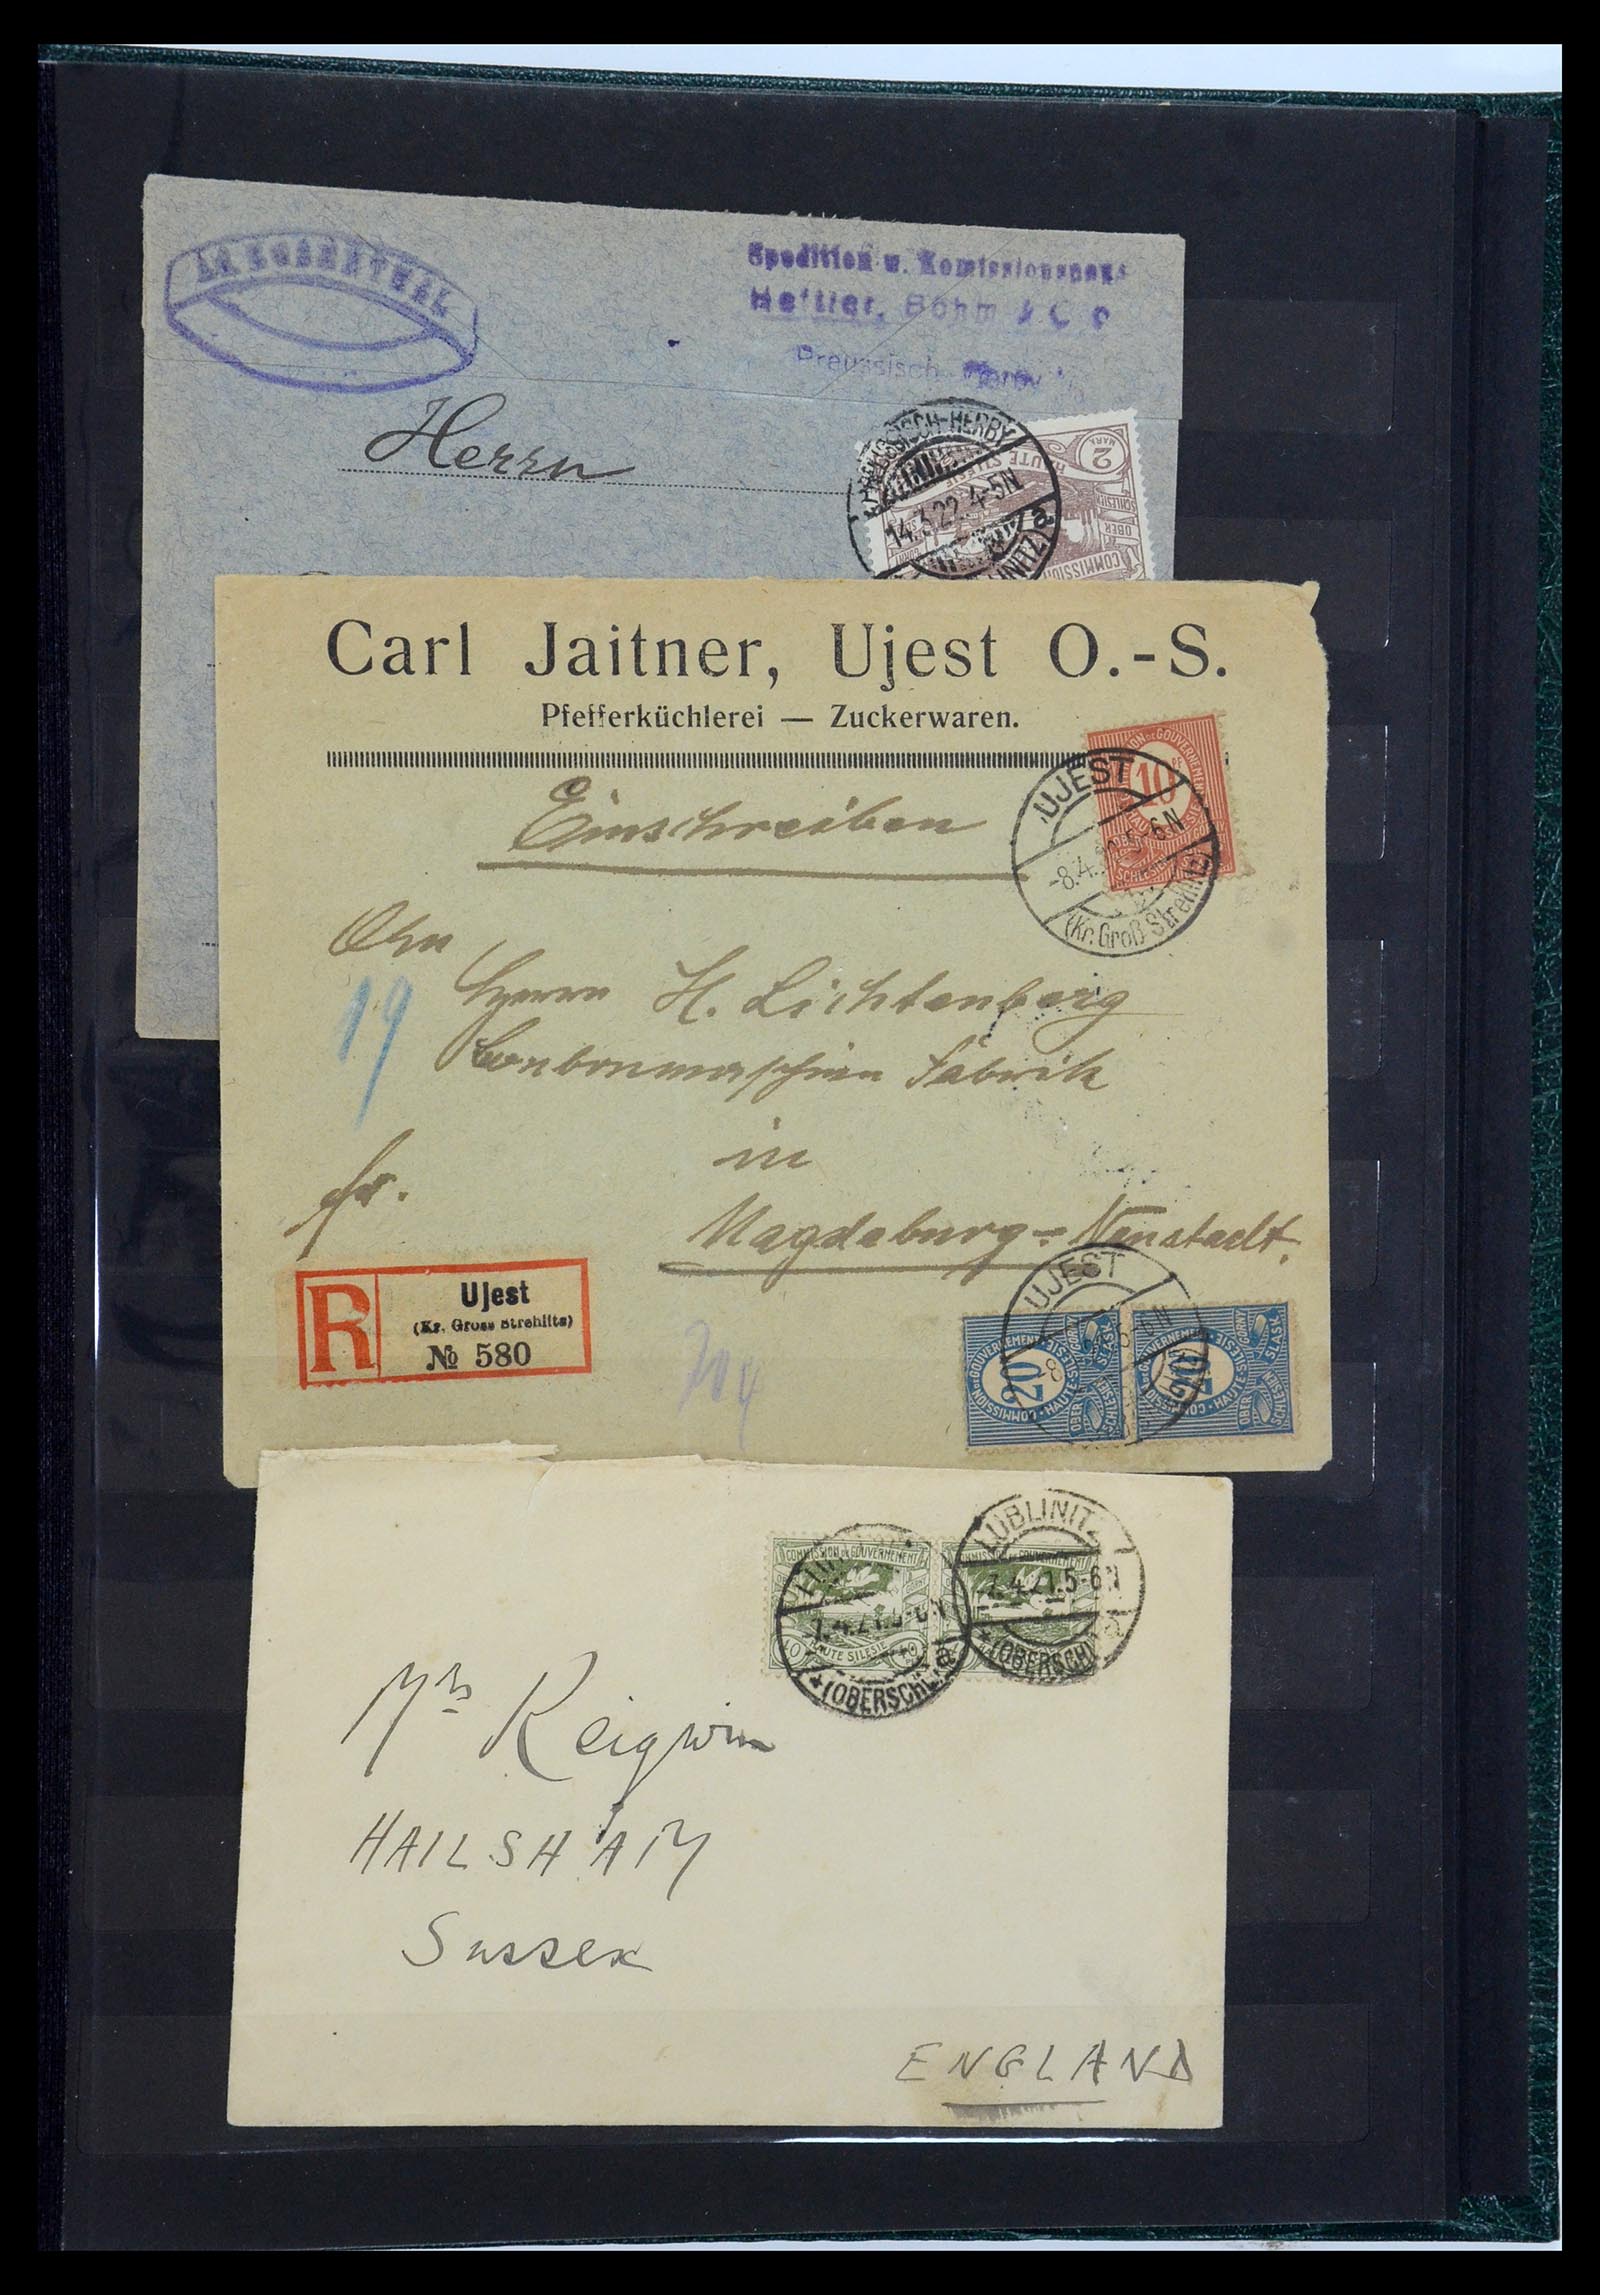 Spedition u.
Heftler, Böhm & Co
Preussisch Herby
Herrn
PREUSSISCH-HERBY
14.3.22.4-5N
a
2
MARK
HAUTE SILESIE
OBER SCHLESIEN
COMMISSION
Carl Jaitner, Ujest O.-S.
Pfefferküchlerei — Zuckerwaren.
10
UJEST
(Kr. Groß Strehlitz)
Einschreiben
An
Herrn H. Lichtenberg
19
Bonbonmaschinen Fabrik
in
fr.
Magdeburg-Neustadt.
R
Ujest
(Kr. Gross Strehlitz)
№ 580
UJEST
20
COMMISSION DE GOUVERNEMENT HAUTE-SILESIE
OBER SCHLESIEN
GORNY SLASK
20
COMMISSION DE GOUVERNEMENT HAUTE-SILESIE
OBER SCHLESIEN
GORNY SLASK
COMMISSION DE GOUVERNEMENT
HAUTE SILESIE
40
LUBLINITZ
-7.4.21.5-6N
a
*(OBERSCHL.)
Mrs Reigwin
HAILSHAM
Sussex
ENGLAND